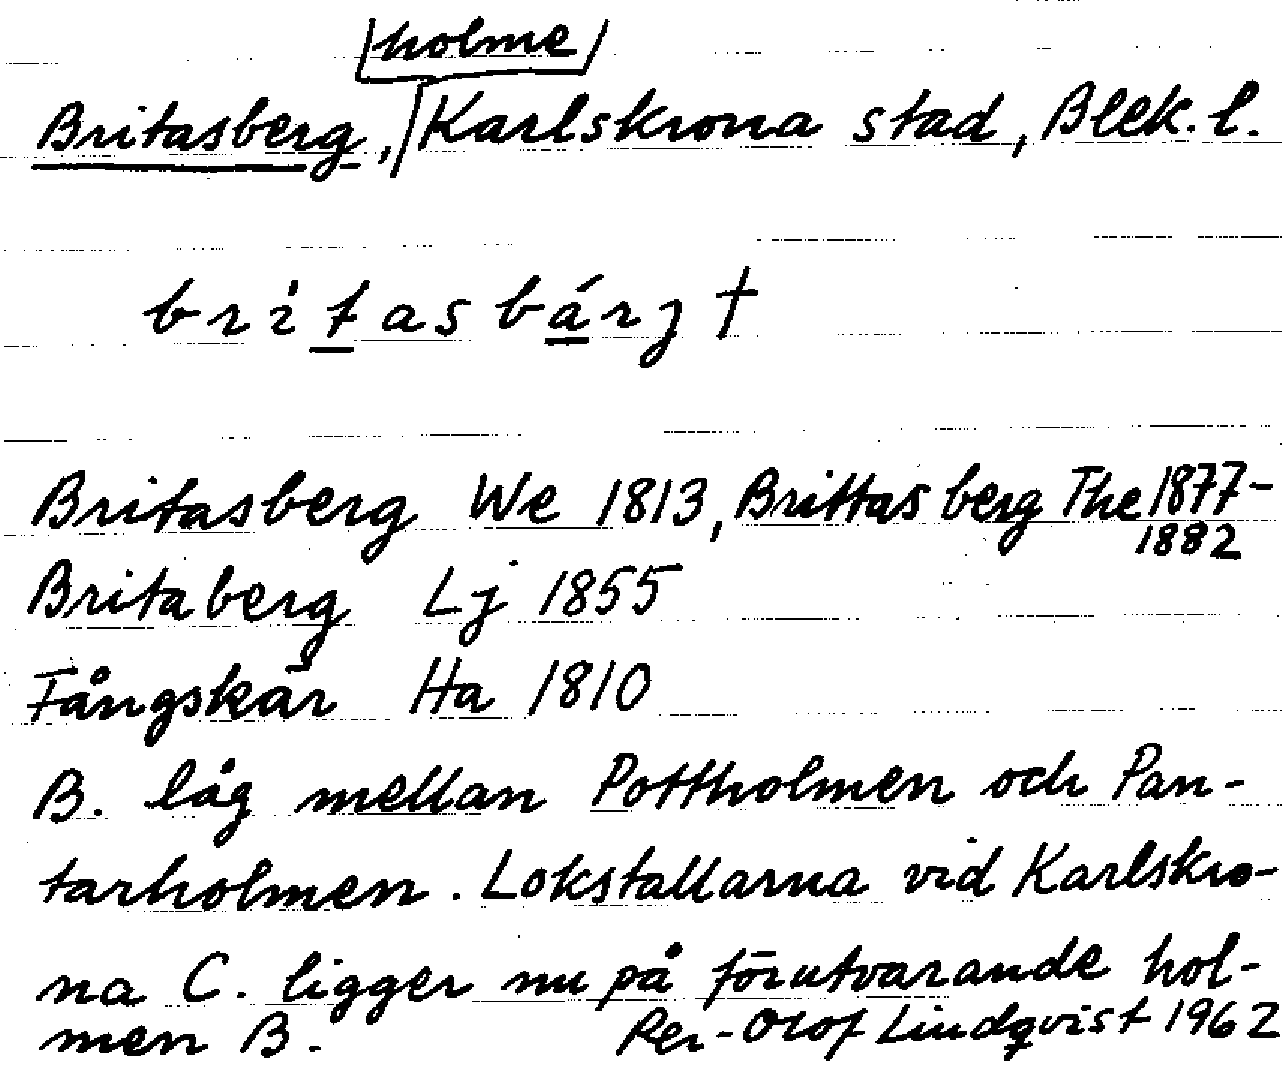 holme
Britasberg, Karlskrona stad, Blek. l.
britasbárj †
Britasberg We 1813, Brittasberg The 1877-
1882
Britaberg Lj 1855
Fångskär Ha 1810
B. låg mellan Pottholmen och Pan-
tarholmen. Lokstallarna vid Karlskro-
na C. ligger nu på förutvarande hol-
men B. Per-Olof Lindqvist 1962